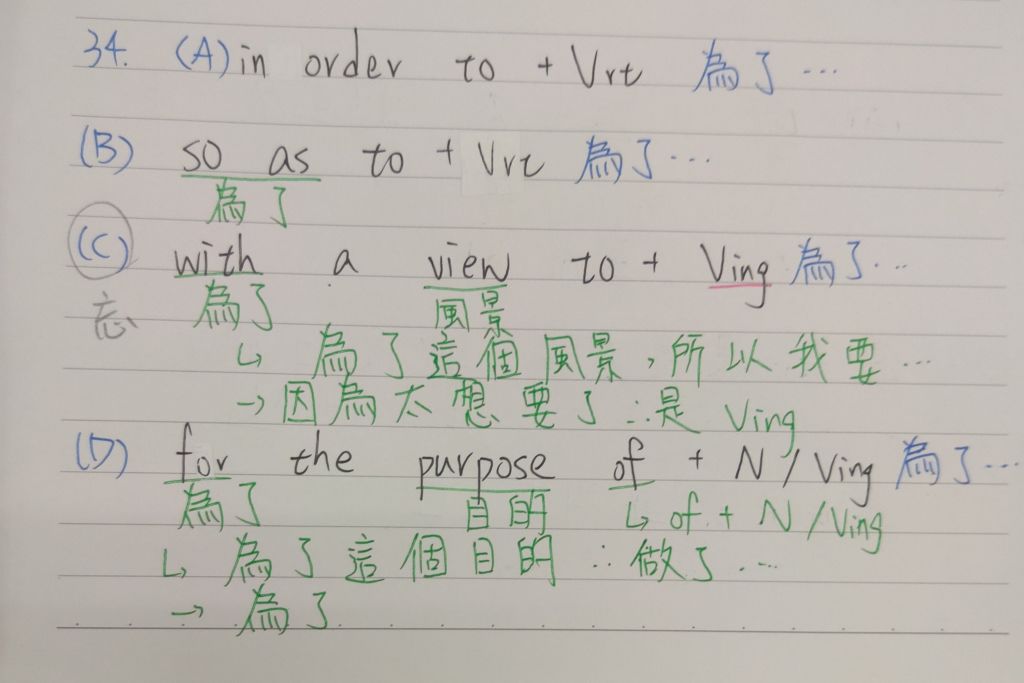 34. (A) in order to + Vrt 為了…
(B) so as to + Vrt 為了…
為了
(C) with a view to + Ving 為了…
忘 為了 風景
↳ 為了這個風景，所以我要…
→ 因為太想要了 ∴是 Ving
(D) for the purpose of + N / Ving 為了…
為了 目的 ↳ of + N / Ving
↳ 為了這個目的 ∴做了…
→ 為了